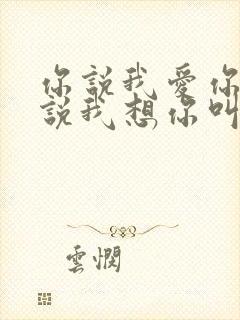 你說我愛你
說我想你叫
雲憫